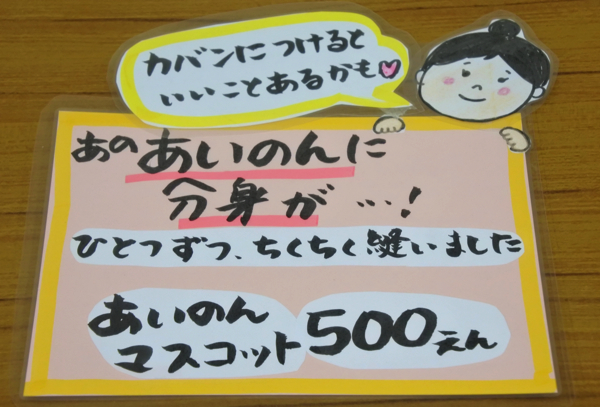 カバンにつけると
いいことあるかも♡
あの あいのんに
分身が…!
ひとつずつ、ちくちく縫いました
あいのん
マスコット500えん